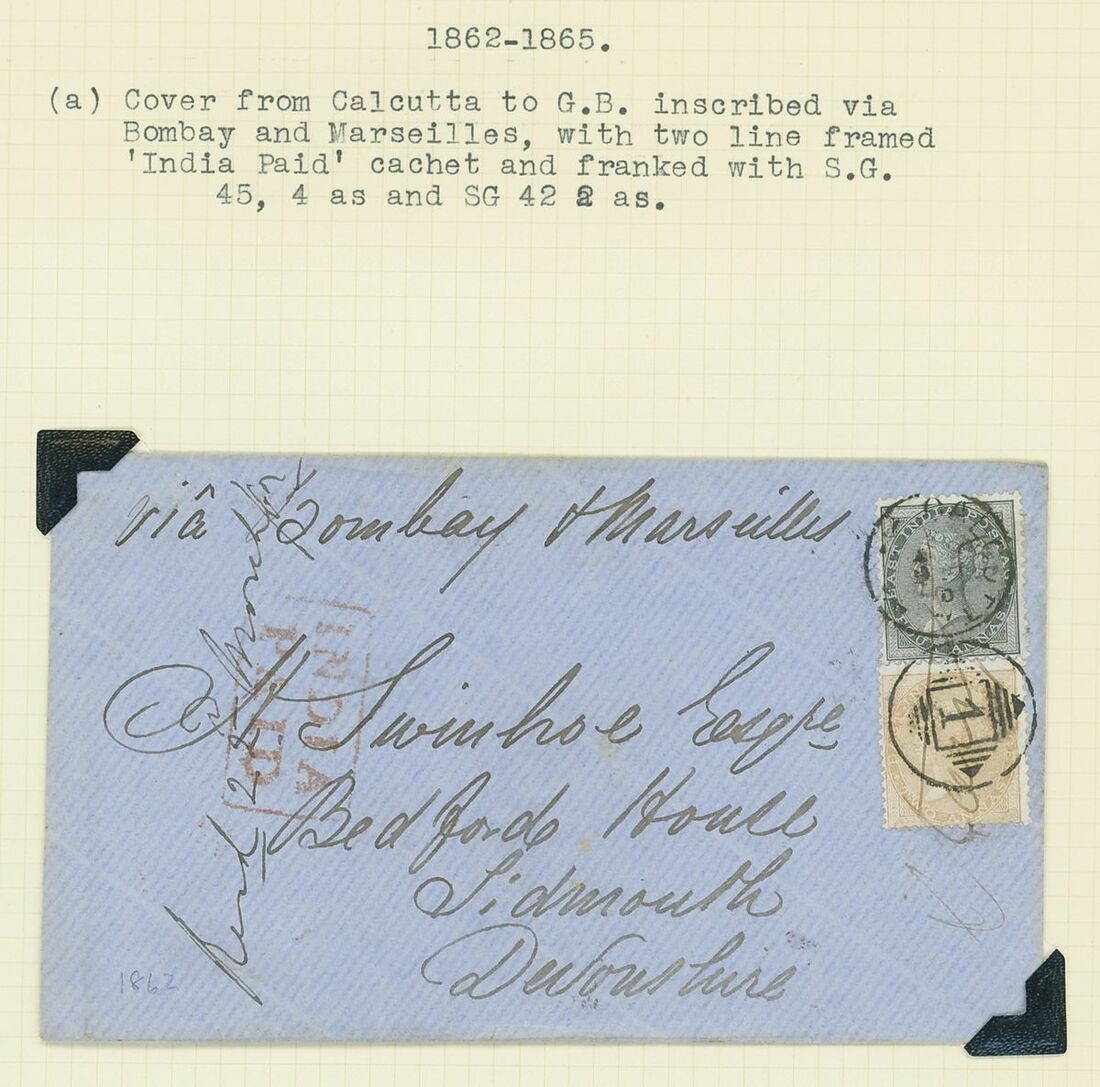 1862-1865.
(a) Cover from Calcutta to G.B. inscribed via
Bombay and Marseilles, with two line framed
'India Paid' cachet and franked with S.G.
45, 4 as and SG 42 2 as.
viâ Bombay & Marseilles
EAST INDIA POSTAGE
FOUR ANNAS
INDIA
PAID
1
Swinhoe Esqre
Bedford House
Sidmouth
Devonshire
TWO ANNAS
1862